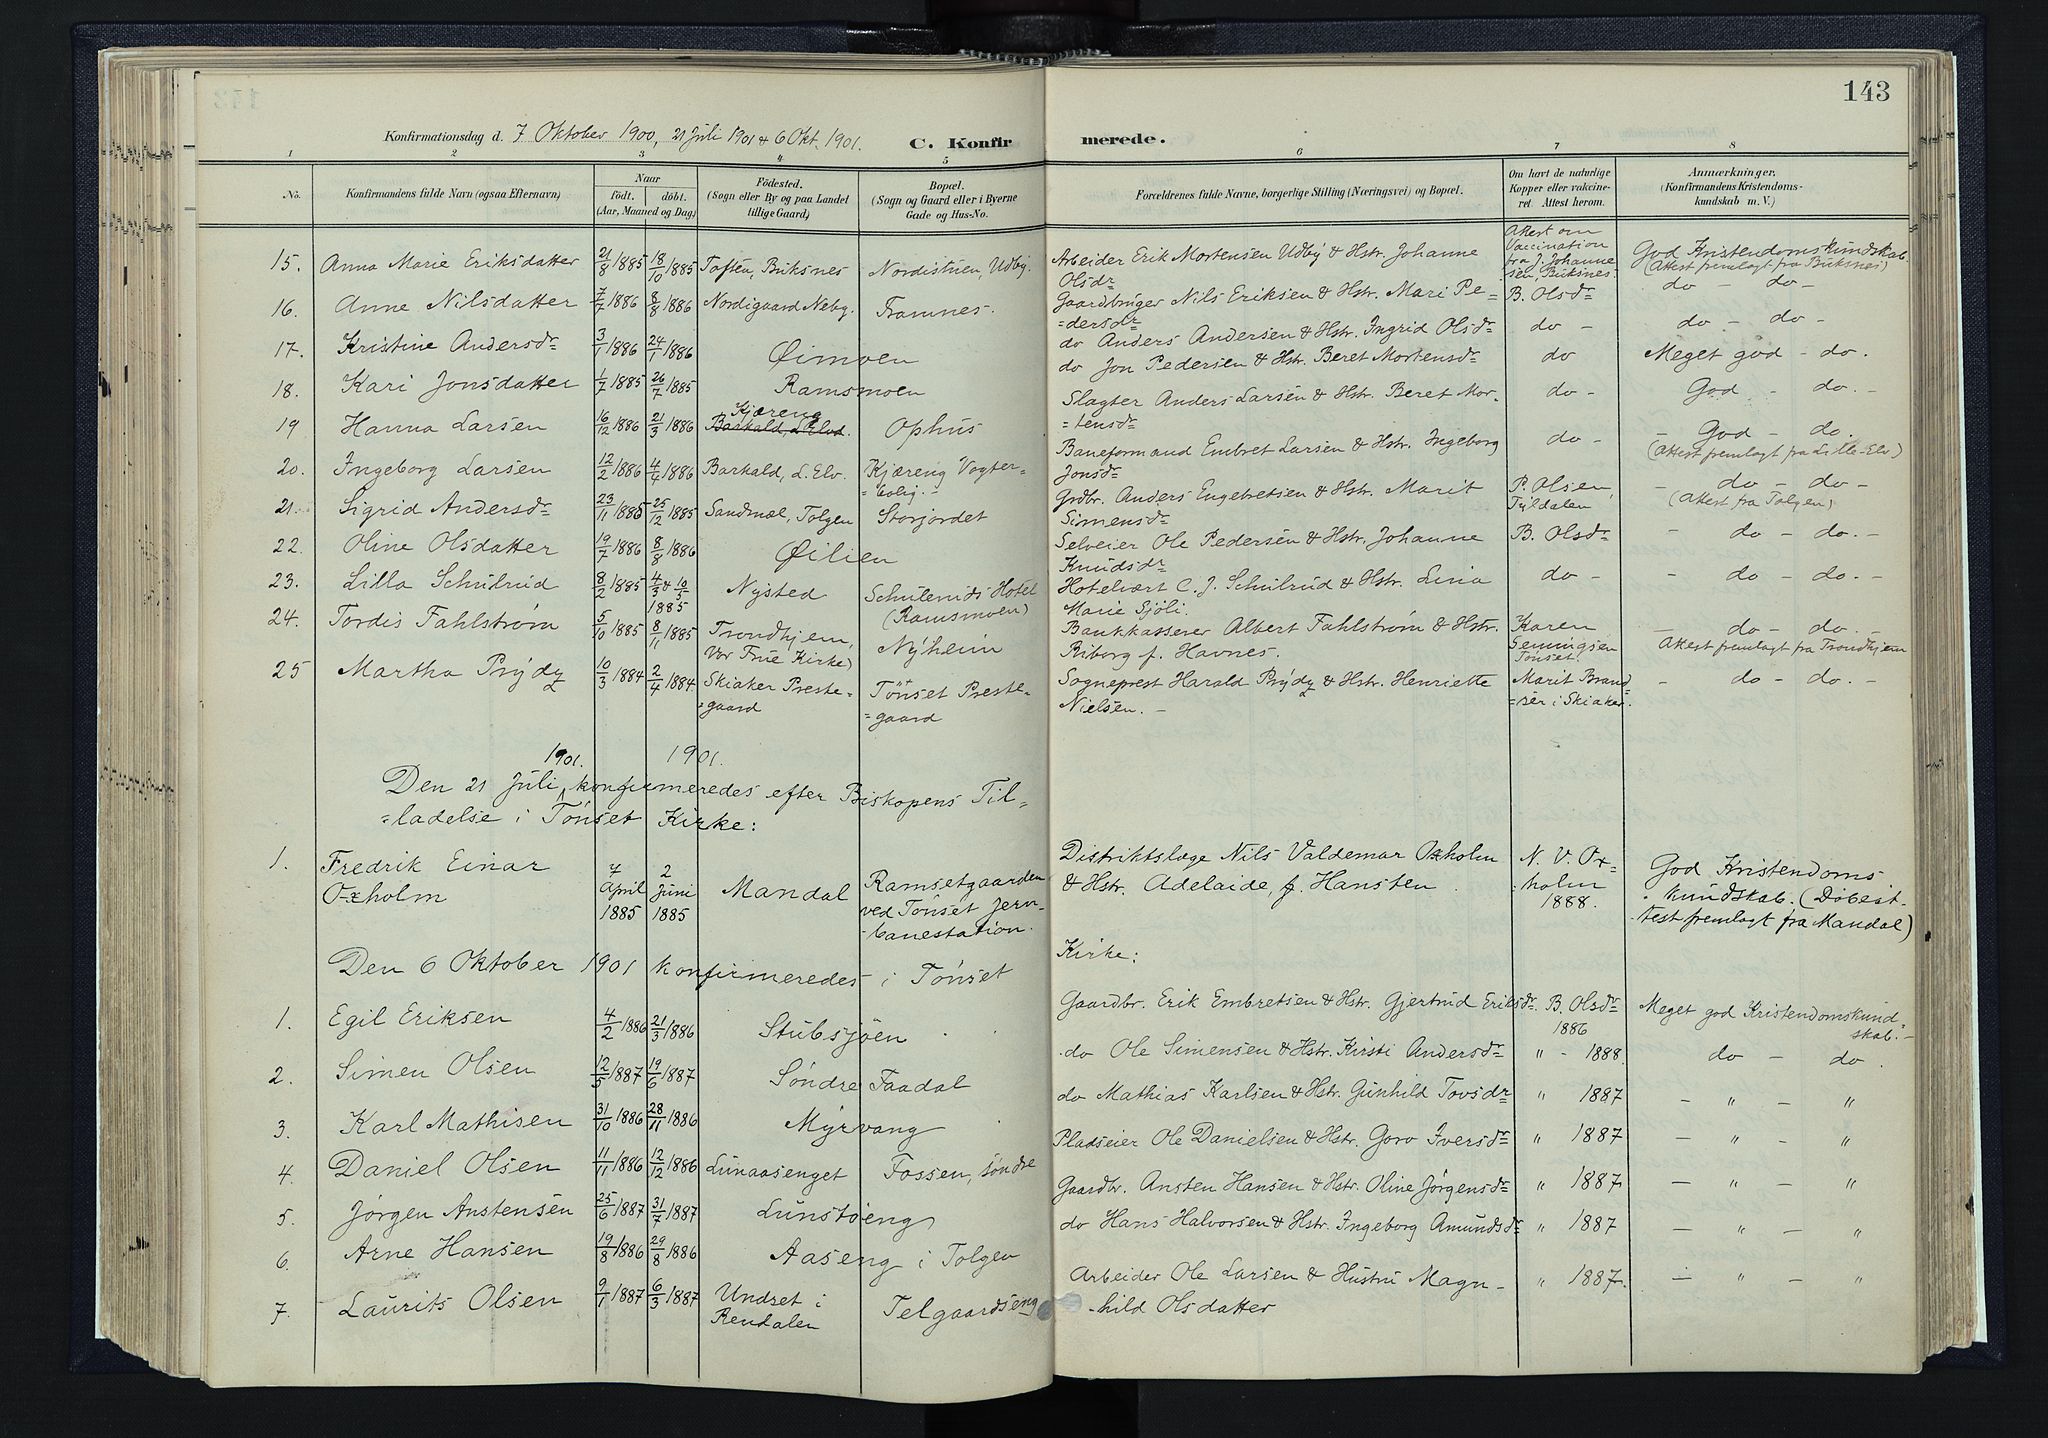 143
Konfirmationsdag d. 7 Oktober 1900, 21 Juli 1901 & 6 Okt. 1901.
C. Konfirmerede.
1 2 3 4 5 6 7 8
No. Konfirmandens fulde Navn (ogsaa Efternavn) Naar födt. döbt. (Aar, Maaned og Dag) Födested. (Sogn eller By og paa Landet tillige Gaard) Bopæl. (Sogn og Gaard eller i Byerne Gade og Hus-No. Forældrenes fulde Navne, borgerlige Stilling (Næringsvei) og Bopæl. Om havt de naturlige Kopper eller vakcineret. Attest herom. Anmærkninger. (Konfirmandens Kristendomskundskab m. V.)
15. Anna Marie Eriksdatter 21/8 1885 18/10 1885 Toften, Buksnes Nordistuen, Udby. Arbeider Erik Mortensen Udby & Hstr. Johanne Olsdr Attest om Vaccination fra J. Johannesen, Buksnes. God Kristendomskundskab. (Attest fremlagt fra Buksnes)
16. Anne Nilsdatter 7/7 1886 8/8 1886 Nordigaard Neby. Framnes. Gaardbruger Nils Eriksen & Hstr. Mari Pe-
=dersdr B. Olsdr do - do -
17. Kristine Andersdr 3/1 1886 24/1 1886 Øimoen do Anders Andersen & Hstr. Ingrid Olsdr do - do - do -
18. Kari Jonsdatter 1/7 1885 26/7 1885 Ramsmoen do Jon Pedersen & Hstr. Beret Mortensdr do Meget god - do.
19 Hanna Larsen 16/12 1886 21/3 1886 Kjæreng Barkald, L. Elvd. Ophus Slagter Anders Larsen & Hstr. Beret Mor-
=tensdr do - God - do. -
20. Ingeborg Larsen 12/2 1886 4/4 1886 Barkald, L. Elv. Kjæreng Vogter-
=bolig. - Baneformand Embret Larsen & Hstr. Ingeborg Jonsdr do - - God - do. (Attest fremlagt fra Lille-Elv)
21. Sigrid Andersdr 23/11 1885 25/12 1885 Sandmæl, Tolgen Storjordet Grdbr. Anders Engebretsen & Hstr. Marit Simensdr P. Olsen, Tyldalen - do - do - (Attest fra Tolgen)
22. Oline Olsdatter 19/7 1886 8/8 1886 Øilien Selveier Ole Pedersen & Hstr. Johanne Knudsdr B. Olsdr - do - do. -
23. Lilla Schulrud 8/2 1885 4/3 & 10/5 1885 Nysted Schulruds Hotel (Ramsmoen) Hotelvært C. J. Schulrud & Hstr. Lina Marie Sjöli. do - - do - do. -
24. Tordis Fahlstrøm 5/10 1885 8/11 1885 Trondhjem, Vor Frue Kirke) Nyheim Bankkasserer Albert Fahlstrøm & Hstr. Riborg f. Havnes. Karen Semmingsen Tönset. - do - do. - Attest fremlagt fra Trondhjem
25 Martha Prydz 10/3 1884 2/4 1884. Skiaker Preste-
=gaard Tönset Preste-
=gaard Sogneprest Harald Prydz & Hstr. Henriette Nielsen. - Marit Brand-
=sær i Skiaker. - do - do. -
1901. 1901.
Den 21 Juli konfirmeredes efter Biskopens Til-
=ladelse i Tönset Kirke:
1. Fredrik Einar Oxholm 7 April 1885 2 Juni 1885 Mandal Ramsetgaarden ved Tönset Jern-
-banestation. Distriktslæge Nils Valdemar Oxholm & Hstr. Adelaide, f. Hansten. N. V. Ox-
holm 1888. God Kristendoms-
kundskab. (Döbeat-
test fremlagt fra Mandal)
Den 6 Oktober 1901 konfirmeredes i Tönset Kirke:
1. Egil Eriksen 4/2 1886 21/3 1886 Stubsjöen Gaardbr. Erik Embretsen & Hstr. Gjertrud Eriksdr. B. Olsdr 1886 Meget god Kristendomskund-
skab. -
2. Simen Olsen 12/5 1887 19/6 1887 Söndre Faadal do Ole Simensen & Hstr. Kirsti Andersdr " - 1888. do - do.
3. Karl Mathisen 31/10 1886 28/11 1886 Myrvang do Mathias Karlsen & Hstr. Gunhild Tovsdr " 1887 - " - "
4. Daniel Olsen 11/11 1886 12/12 1886 Lunaasenget Fossen, söndre Pladseier Ole Danielsen & Hstr. Goro Iversdr " 1887 - " - "
5. Jørgen Anstensen 25/6 1887 31/7 1887 Lunstöeng Gaardbr. Ansten Hansen & Hstr. Oline Jørgensdr " 1887 - " - "
6. Arne Hansen 19/8 1886 29/8 1886 Aaseng i Tolgen do Hans Halvorsen & Hstr. Ingeborg Amundsdr " 1887 - " - "
7. Laurits Olsen 9/1 1887 6/3 1887 Undset i Rendalen Telgaardseng Arbeider Ole Larsen & Hustru Magn-
-hild Olsdatter " 1887. - " - "